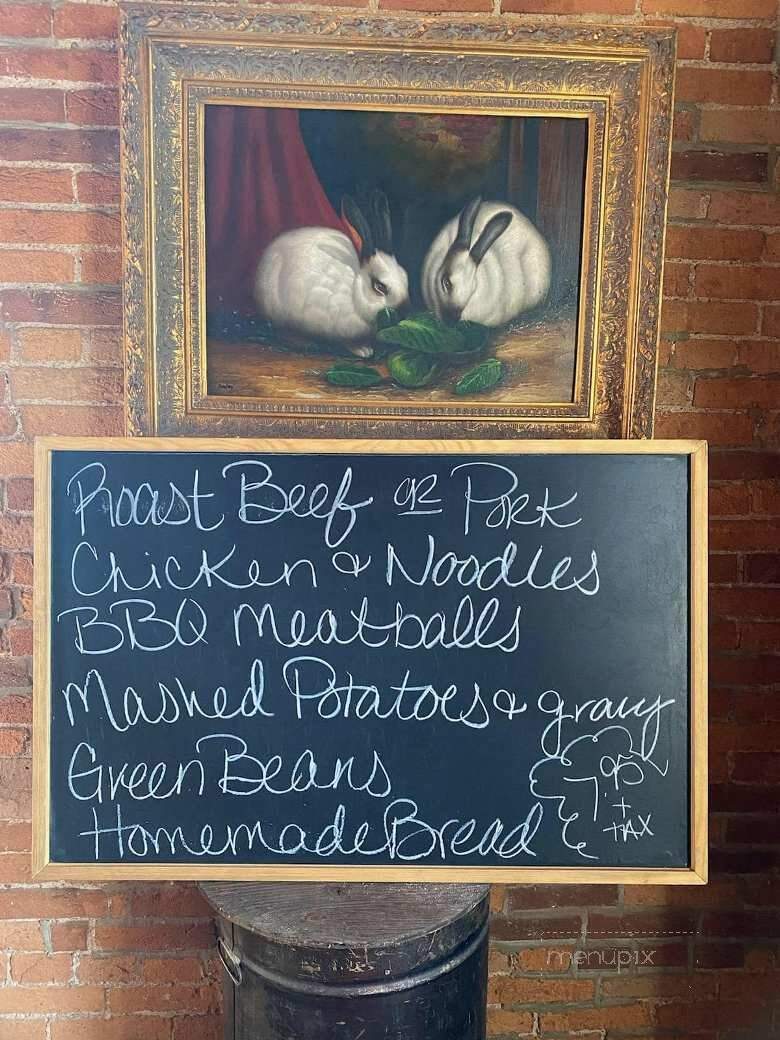 Roast Beef or Pork
Chicken & Noodles
BBQ Meatballs
Mashed Potatoes & gravy
Green Beans
7.95
+
TAX
Homemade Bread
menupix